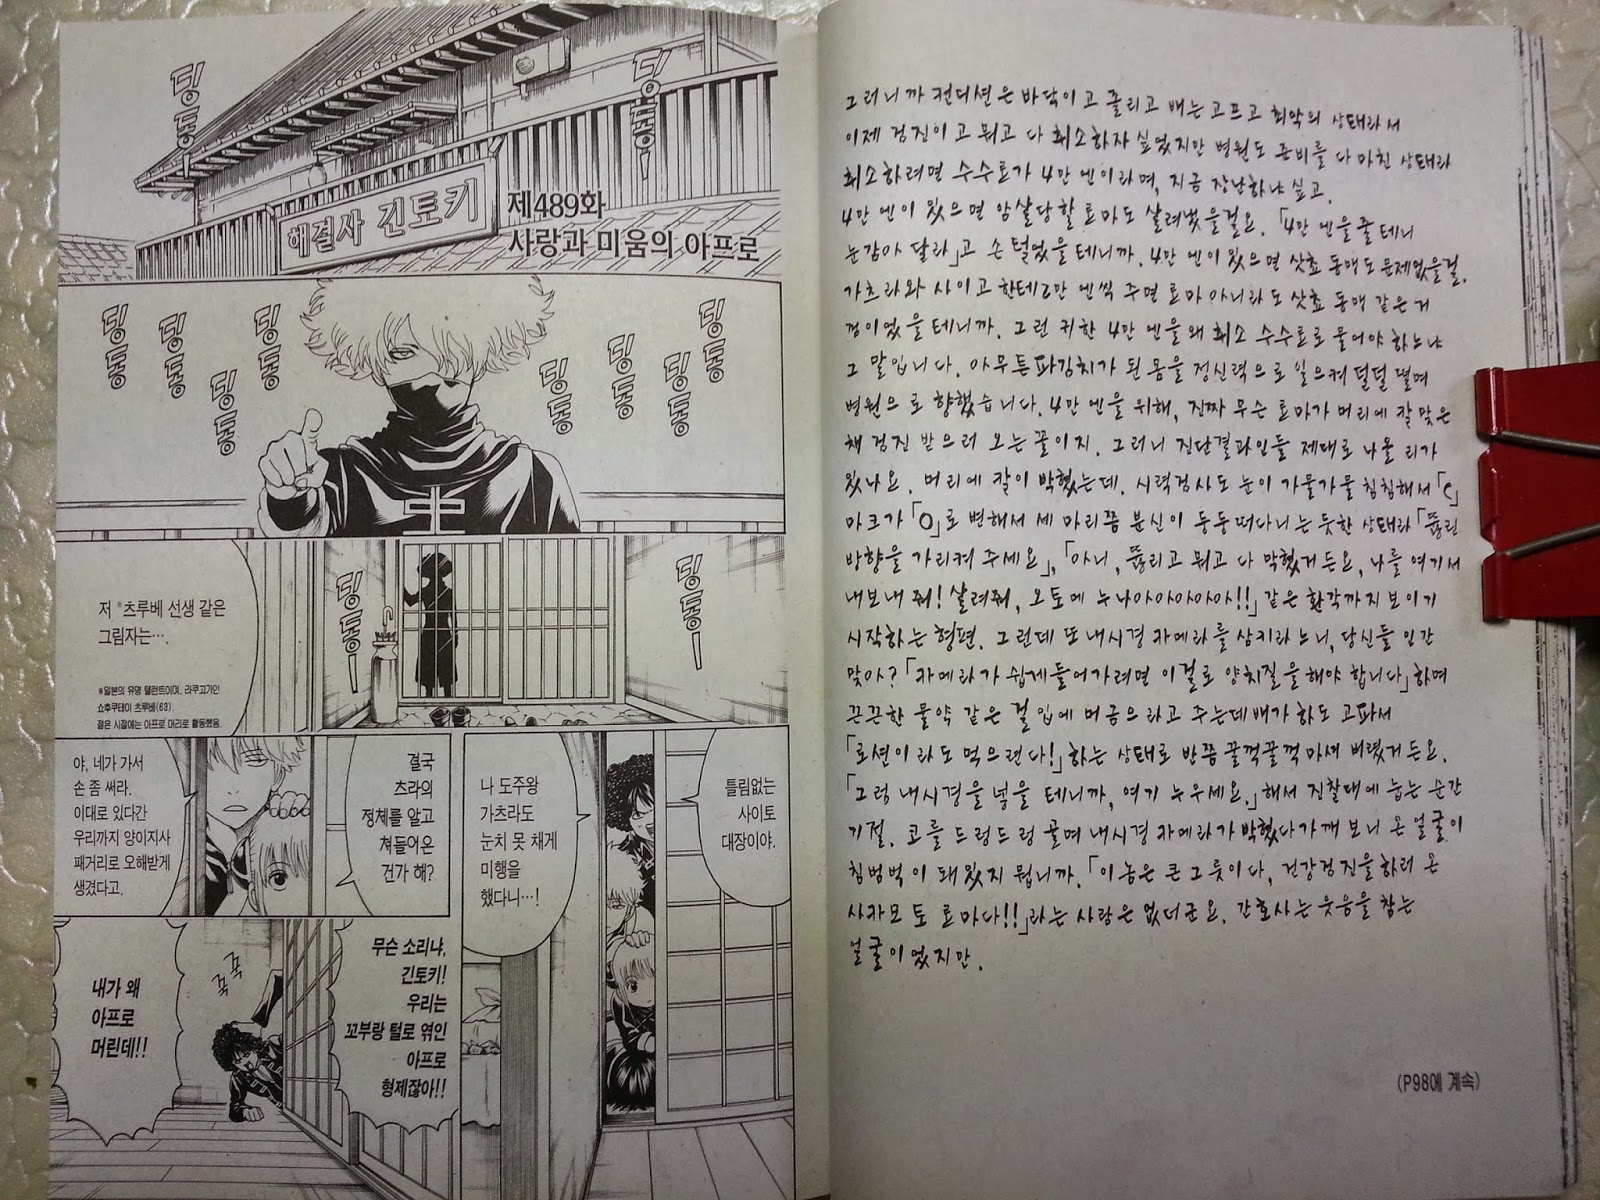 딩동ー
딩동ー
해결사 긴토키
제489화
사랑과 미움의 아프로
딩동
딩동
딩동
딩동
딩동
딩동
딩동
딩동
저 *츠루베 선생 같은
그림자는….
*일본의 유명 탤런트이며, 라쿠고가인
쇼후쿠테이 츠루베(63).
젊은 시절에는 아프로 머리로 활동했음.
딩동ー
딩동ー
야, 네가 가서
손 좀 써라.
이대로 있다간
우리까지 양이지사
패거리로 오해받게
생겼다고.
결국
츠라의
정체를 알고
쳐들어온
건가 해?
나 도주왕
가츠라도
눈치 못 채게
미행을
했다니…!
틀림없는
사이토
대장이야.
내가 왜
아프로
머린데!!
쭉
쭉
무슨 소리냐,
긴토키!
우리는
꼬부랑 털로 엮인
아프로
형제잖아!!
그러니까 컨디션은 바닥이고 졸리고 배는 고프고 최악의 상태라서
이제 검진이고 뭐고 다 취소하자 싶었지만 병원도 준비를 다 마친 상태라
취소하려면 수수료가 4만 엔이라며, 지금 장난하냐 싶고.
4만 엔이 있으면 암살당할 료마도 살려냈을걸요. 「4만 엔을 줄 테니
눈감아 달라」고 손 털었을 테니까. 4만 엔이 있으면 삿쵸 동맹도 문제없었을걸.
가츠라와 사이고 한테 2만 엔씩 주면 료마 아니라도 삿쵸 동맹 같은 거
껌이었을 테니까. 그런 귀한 4만 엔을 왜 취소 수수료로 물어야 하느냐
그 말입니다. 아무튼 파김치가 된 몸을 정신력으로 일으켜 덜덜 떨며
병원으로 향했습니다. 4만 엔을 위해, 진짜 무슨 료마가 머리에 칼 맞은
채 검진 받으러 오는 꼴이지. 그러니 진단결과인들 제대로 나올 리가
있나요. 머리에 칼이 박혔는데. 시력검사도 눈이 가물가물 침침해서 「C」
마크가 「O」로 변해서 세 마리쯤 분신이 둥둥 떠다니는 듯한 상태라 「뚫린
방향을 가리켜 주세요」, 「아니, 뚫리고 뭐고 다 막혔거든요, 나를 여기서
내보내 줘! 살려줘, 오토메 누나아아아아아!!」 같은 환각까지 보이기
시작하는 형편. 그런데 또 내시경 카메라를 삼키라느니, 당신들 인간
맞아? 「카메라가 쉽게 들어가려면 이걸로 양치질을 해야 합니다」하며
끈끈한 물약 같은 걸 입에 머금으라고 주는데 배가 하도 고파서
「로션이라도 먹으련다!」하는 상태로 반쯤 꿀꺽꿀꺽 마셔 버렸거든요.
「그럼 내시경을 넣을 테니까, 여기 누우세요.」해서 진찰대에 눕는 순간
기절. 코를 드렁드렁 골며 내시경 카메라가 박혔다가 깨 보니 온 얼굴이
침범벅이 돼있지 뭡니까. 「이 놈은 큰 그릇이다, 건강검진을 하러 온
사카모토 료마다!!」라는 사람은 없더군요. 간호사는 웃음을 참는
얼굴이었지만.
(P98에 계속)